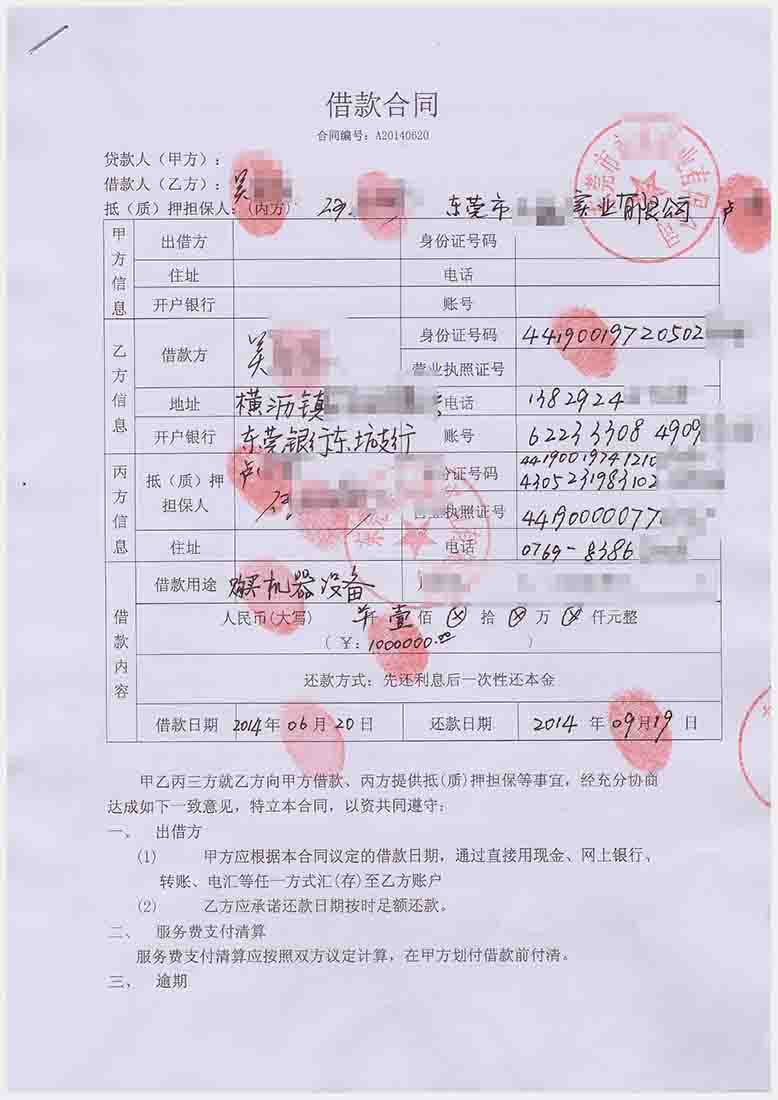 借款合同
合同编号：A20140620
贷款人（甲方）：
借款人（乙方）：吴
抵（质）押担保人：（丙方） 东莞市 实业有限公司 卢
甲方信息
出借方 身份证号码
住址 电话
开户银行 账号
乙方信息
借款方 吴 身份证号码 44190019720502
营业执照证号
地址 横沥镇 电话 1382924
开户银行 东莞银行东坑支行 账号 6223 3308 4909
丙方信息
抵（质）押担保人 卢 份证号码 44190019741210
4305231983102
营业执照证号 4419000077
住址 电话 0769-8386
借款内容
借款用途 购买机器设备
人民币(大写) 仟 壹 佰 ⊗ 拾 ⊗ 万 ⊗ 仟元整
（￥：1000000.00 ）
还款方式：先还利息后一次性还本金
借款日期 2014年 06月 20日 还款日期 2014 年 09月 19 日
甲乙丙三方就乙方向甲方借款、丙方提供抵(质)押担保等事宜，经充分协商
达成如下一致意见，特立本合同，以资共同遵守：
一、 出借方
(1) 甲方应根据本合同议定的借款日期，通过直接用现金、网上银行、
转账、电汇等任一方式汇(存)至乙方账户
(2) 乙方应承诺还款日期按时足额还款。
二、 服务费支付清算
服务费支付清算应按照双方议定计算，在甲方划付借款前付清。
三、 逾期